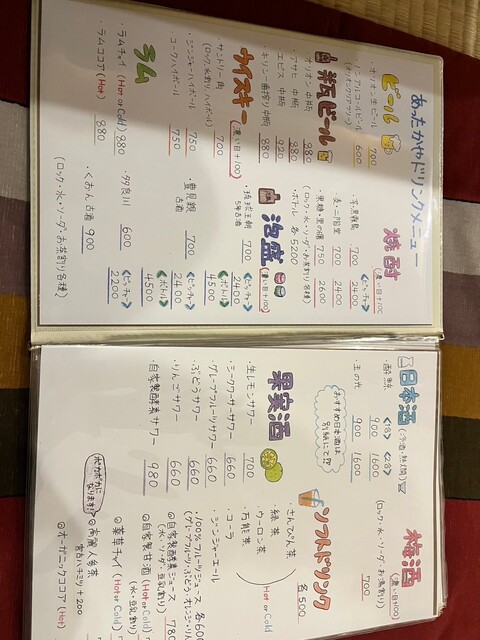 あったかやドリンクメニュー
ビール
・オリオン生ビール 700
・ノンアルコールビール 600
(オリオンクリアフリー)
瓶ビール
・オリオン 中瓶 880
・アサヒ 中瓶 880
・エビス 中瓶 920
・キリン一番搾り 中瓶 880
ウイスキー (濃い目+100)
・サントリー角 700
(ロック、水割り、ハイボール)
・ジンジャーハイボール 750
・コークハイボール 750
ラム
・ラムチャイ (Hot or Cold) 980
・ラムココア (Hot) 880
焼酎 (濃い目+100)
<ピッチャー>
700 2400
・麦・二階堂 700 2400
・黒糖・里の曙 750 2600
ボトル 各5200
(ロック・水・ソーダ・お茶割り各種)
泡盛 (濃い目+100)
・琉球王朝 700 <ピッチャー> 2400
5年古酒 <ボトル> 4500
・豊見親 700 <ピッチャー> 2400
古酒 <ボトル> 4500
・多良川 600 <ピッチャー> 2200
・くおん古酒 900
(ロック・水・ソーダ・お茶割り各種)
日本酒 (冷酒・熱燗)
<1合> <2合>
900 1600
・玉の光 900 1600
おすすめ日本酒は
別紙にて!!
果実酒
・生レモンサワー 700
・シークワーサーサワー 660
・グレープフルーツサワー 660
・ぶどうサワー 660
・りんごサワー 660
・自家製酵素サワー 980
梅酒 (濃い目+100)
700
(ロック・水・ソーダ・お湯割り)
ソフトドリンク
各500
・さんぴん茶
・緑茶
・ウーロン茶
Hot or Cold
・コーラ
・ジンジャーエール
・100%フルーツジュース 各600
(グレープフルーツ・ぶどう・オレンジ・りん
◎自家製酵素ジュース 780
(水・ソーダ・豆乳割り)
◎自家製甘酒 (Hot or Cold)
(水・豆乳割り)
◎薬草チャイ (Hot or Cold)
ポカポカに
なります!!
◎高麗人参茶
宮古ハチミツ +200
◎オーガニックココア (Hot)